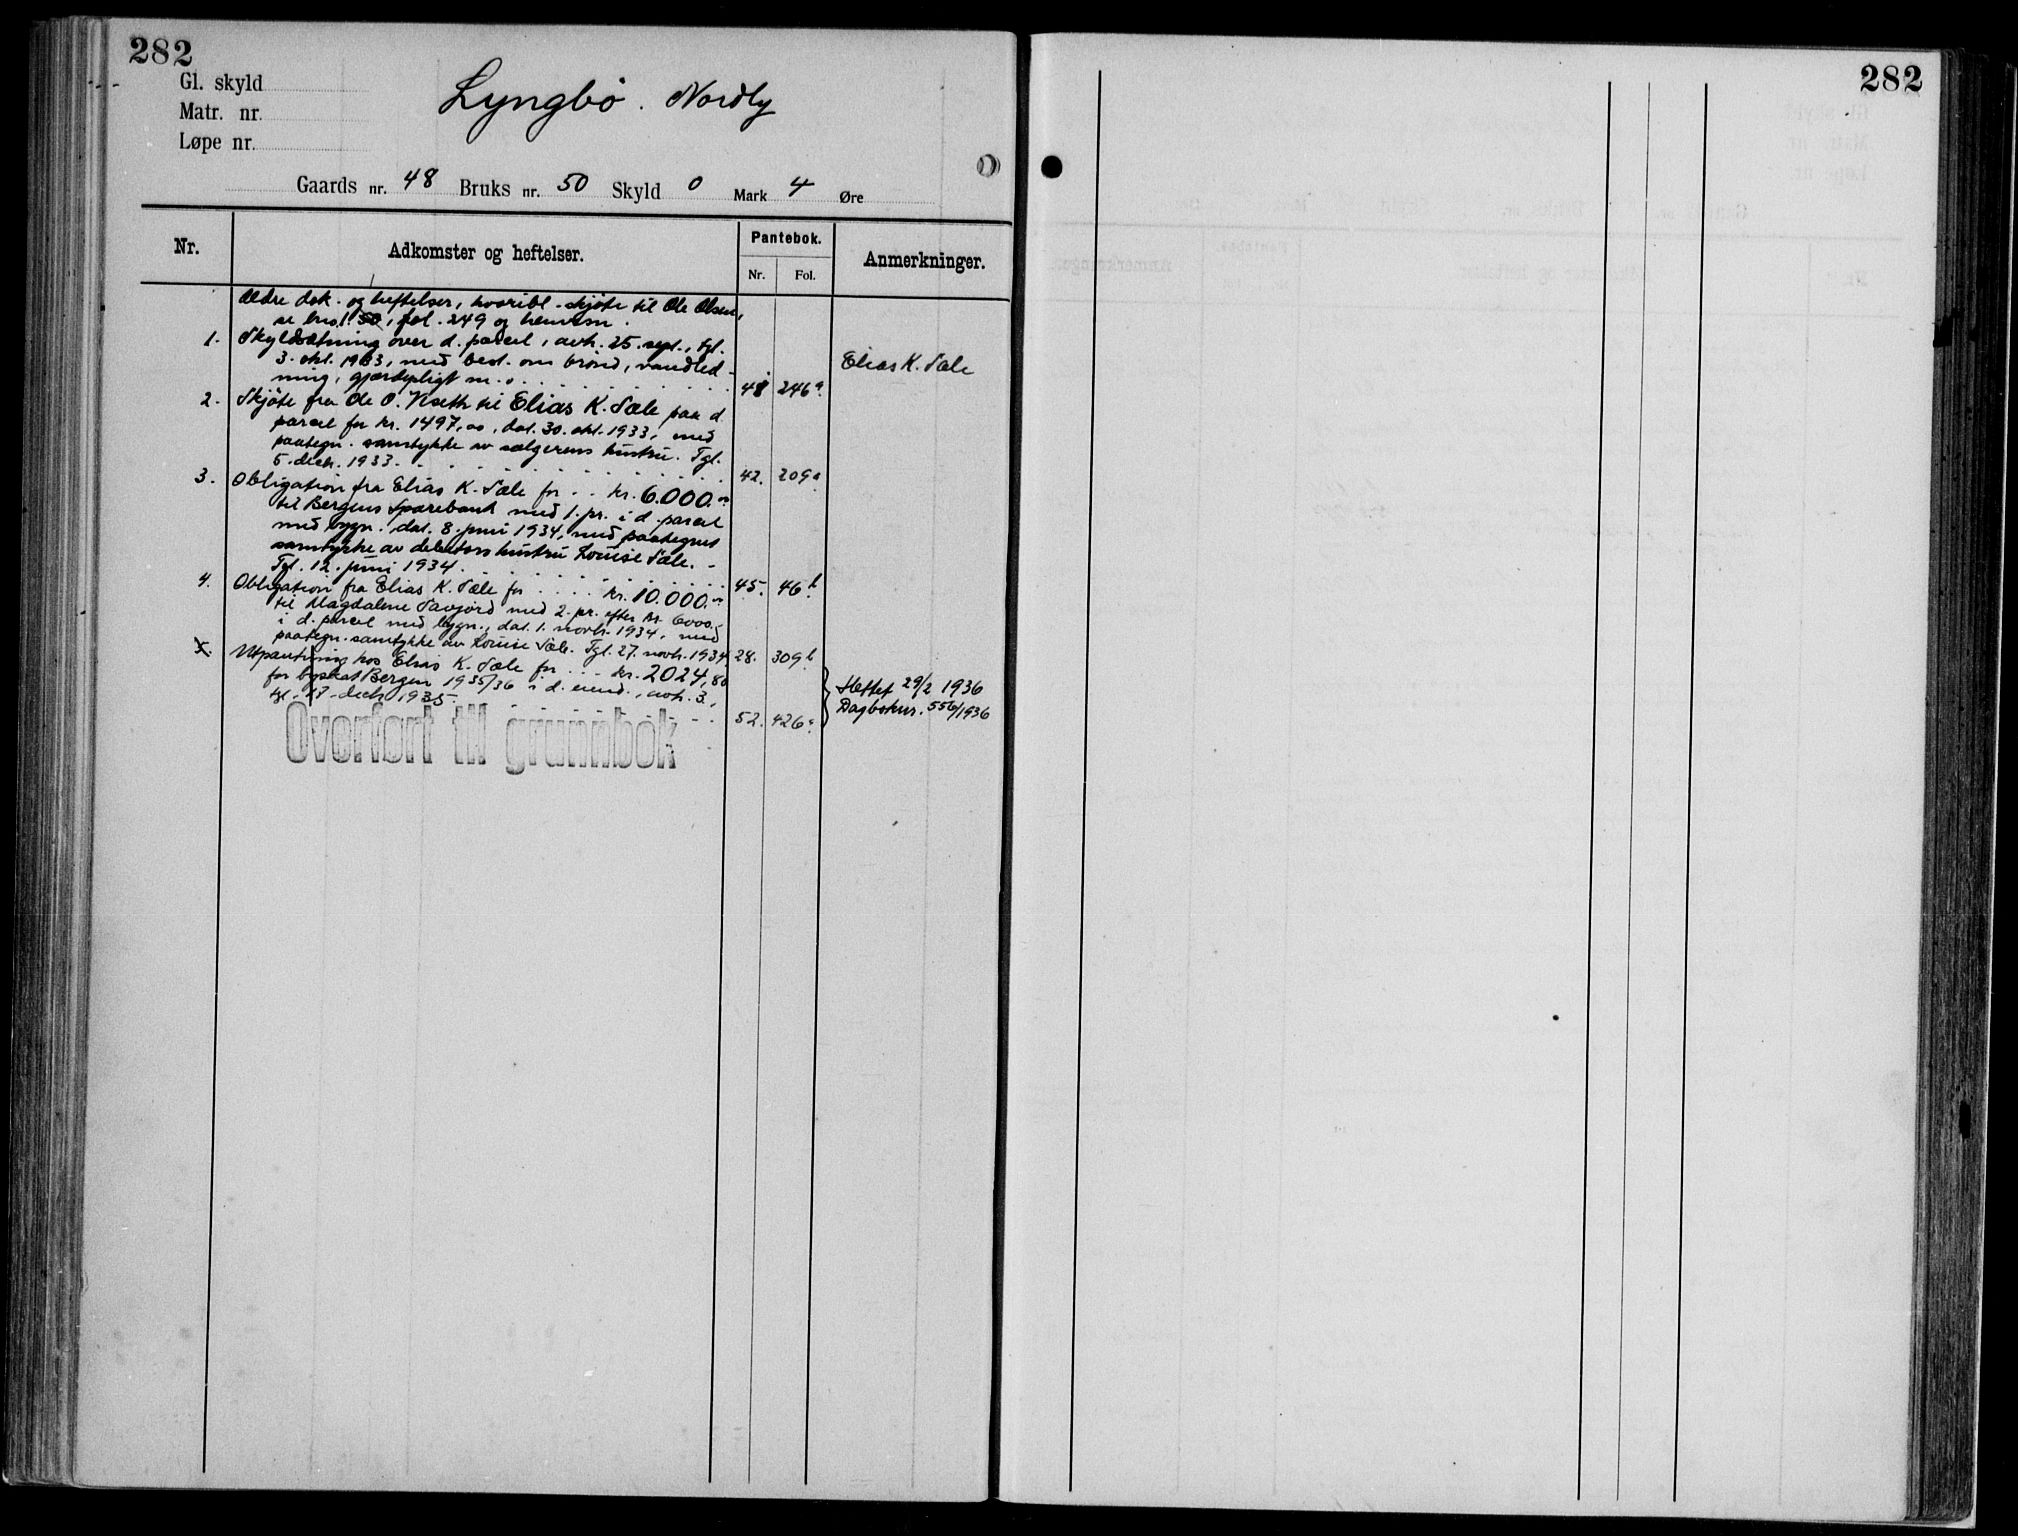 282
Gl. skyld
Matr. nr.
Løpe nr.
Lyngbö. Nordly
Gaards nr. 48 Bruks nr. 50 Skyld 0 Mark 4 Øre
Nr. Adkomster og heftelser. Pantebok. Anmerkninger.
Nr. Fol.
Ældre dok. og heftelser, hvoribl. skjøte til Ole Olsen,
se bno. 1, fol. 249 og henvisn.
1. Skyldsætning over d. parcel, avh. 25. sept., tgl.
3. okt. 1933, med best. om brönd, vandled-
ning, gjærdepligt m. . 48 246a
Elias K. Sæle
2. Skjöte fra Ole O. Næth til Elias K. Sæle paa d.
parcel for kr. 1497,00, dat. 30. okt. 1933, med
paategn. samtykke av sælgerens hustru. Tgl.
5. decb. 1933. 42. 209a
3. Obligation fra Elias K. Sæle for . . kr. 6.000.00
til Bergens Sparebank med 1. pr. i d. parcel
med bygn. dat. 8. juni 1934, med paategnet
samtykke av debitors hustru Louise Sæle. -
Tgl. 12. juni 1934. 45. 46b
4. Obligation fra Elias K. Sæle for . . . . kr. 10.000.00
til Magdalene Tavjord med 2. pr. efter kr. 6000.-
i d. parcel med bygn., dat. 1. novb. 1934, med
paategn. samtykke av Louise Sæle. Tgl. 27. novb. 1934. 28. 309b
5. Utpantning hos Elias K. Sæle for . . . kr. 2024,80
for byskat Bergen 1935/36 i d. eiend., avh. 3.,
tgl. 27. decb. 1935. 52. 426a
Hettet 29/2 1936
Dagboknr. 556/1936
Overført til grunnbok
282